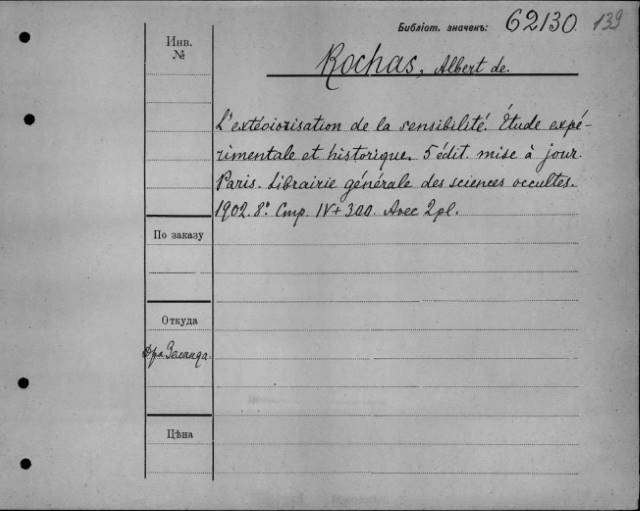 Библіот. значекъ: 62130. 139
Инв. №
Rochas, Albert de.
L'extériorisation de la sensibilité. Étude expé-
rimentale et historique. 5 édit. mise à jour.
Paris. Librairie générale des sciences occultes.
1902. 8º. Стр. IV+300. Avec 2 pl.
По заказу
Откуда
Д-ра
Цѣна